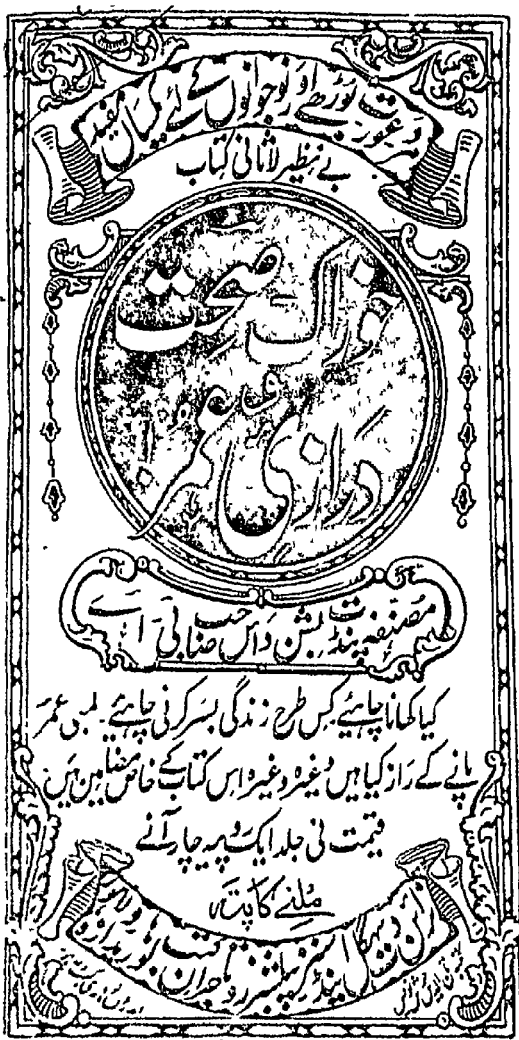 مرد عورت بوڑھے اور نوجوانوں کے لئے یکساں مفید
بے نظیر لاثانی کتاب
خوراک صحت
درازی عمر
مصنفہ پنڈت بشن داس صاحب بی اے
کیا کھانا چاہیئے کس طرح زندگی بسر کرنی چاہیئے۔ لمبی عمر
پانے کے راز کیا ہیں وغیرہ وغیرہ اس کتاب کے خاص مضامین ہیں
قیمت فی جلد ایک روپیہ چار آنے
ملنے کا پتہ
اینڈ سنز پبلشرز و تاجران کتب لوہاریدروازہ لاہور